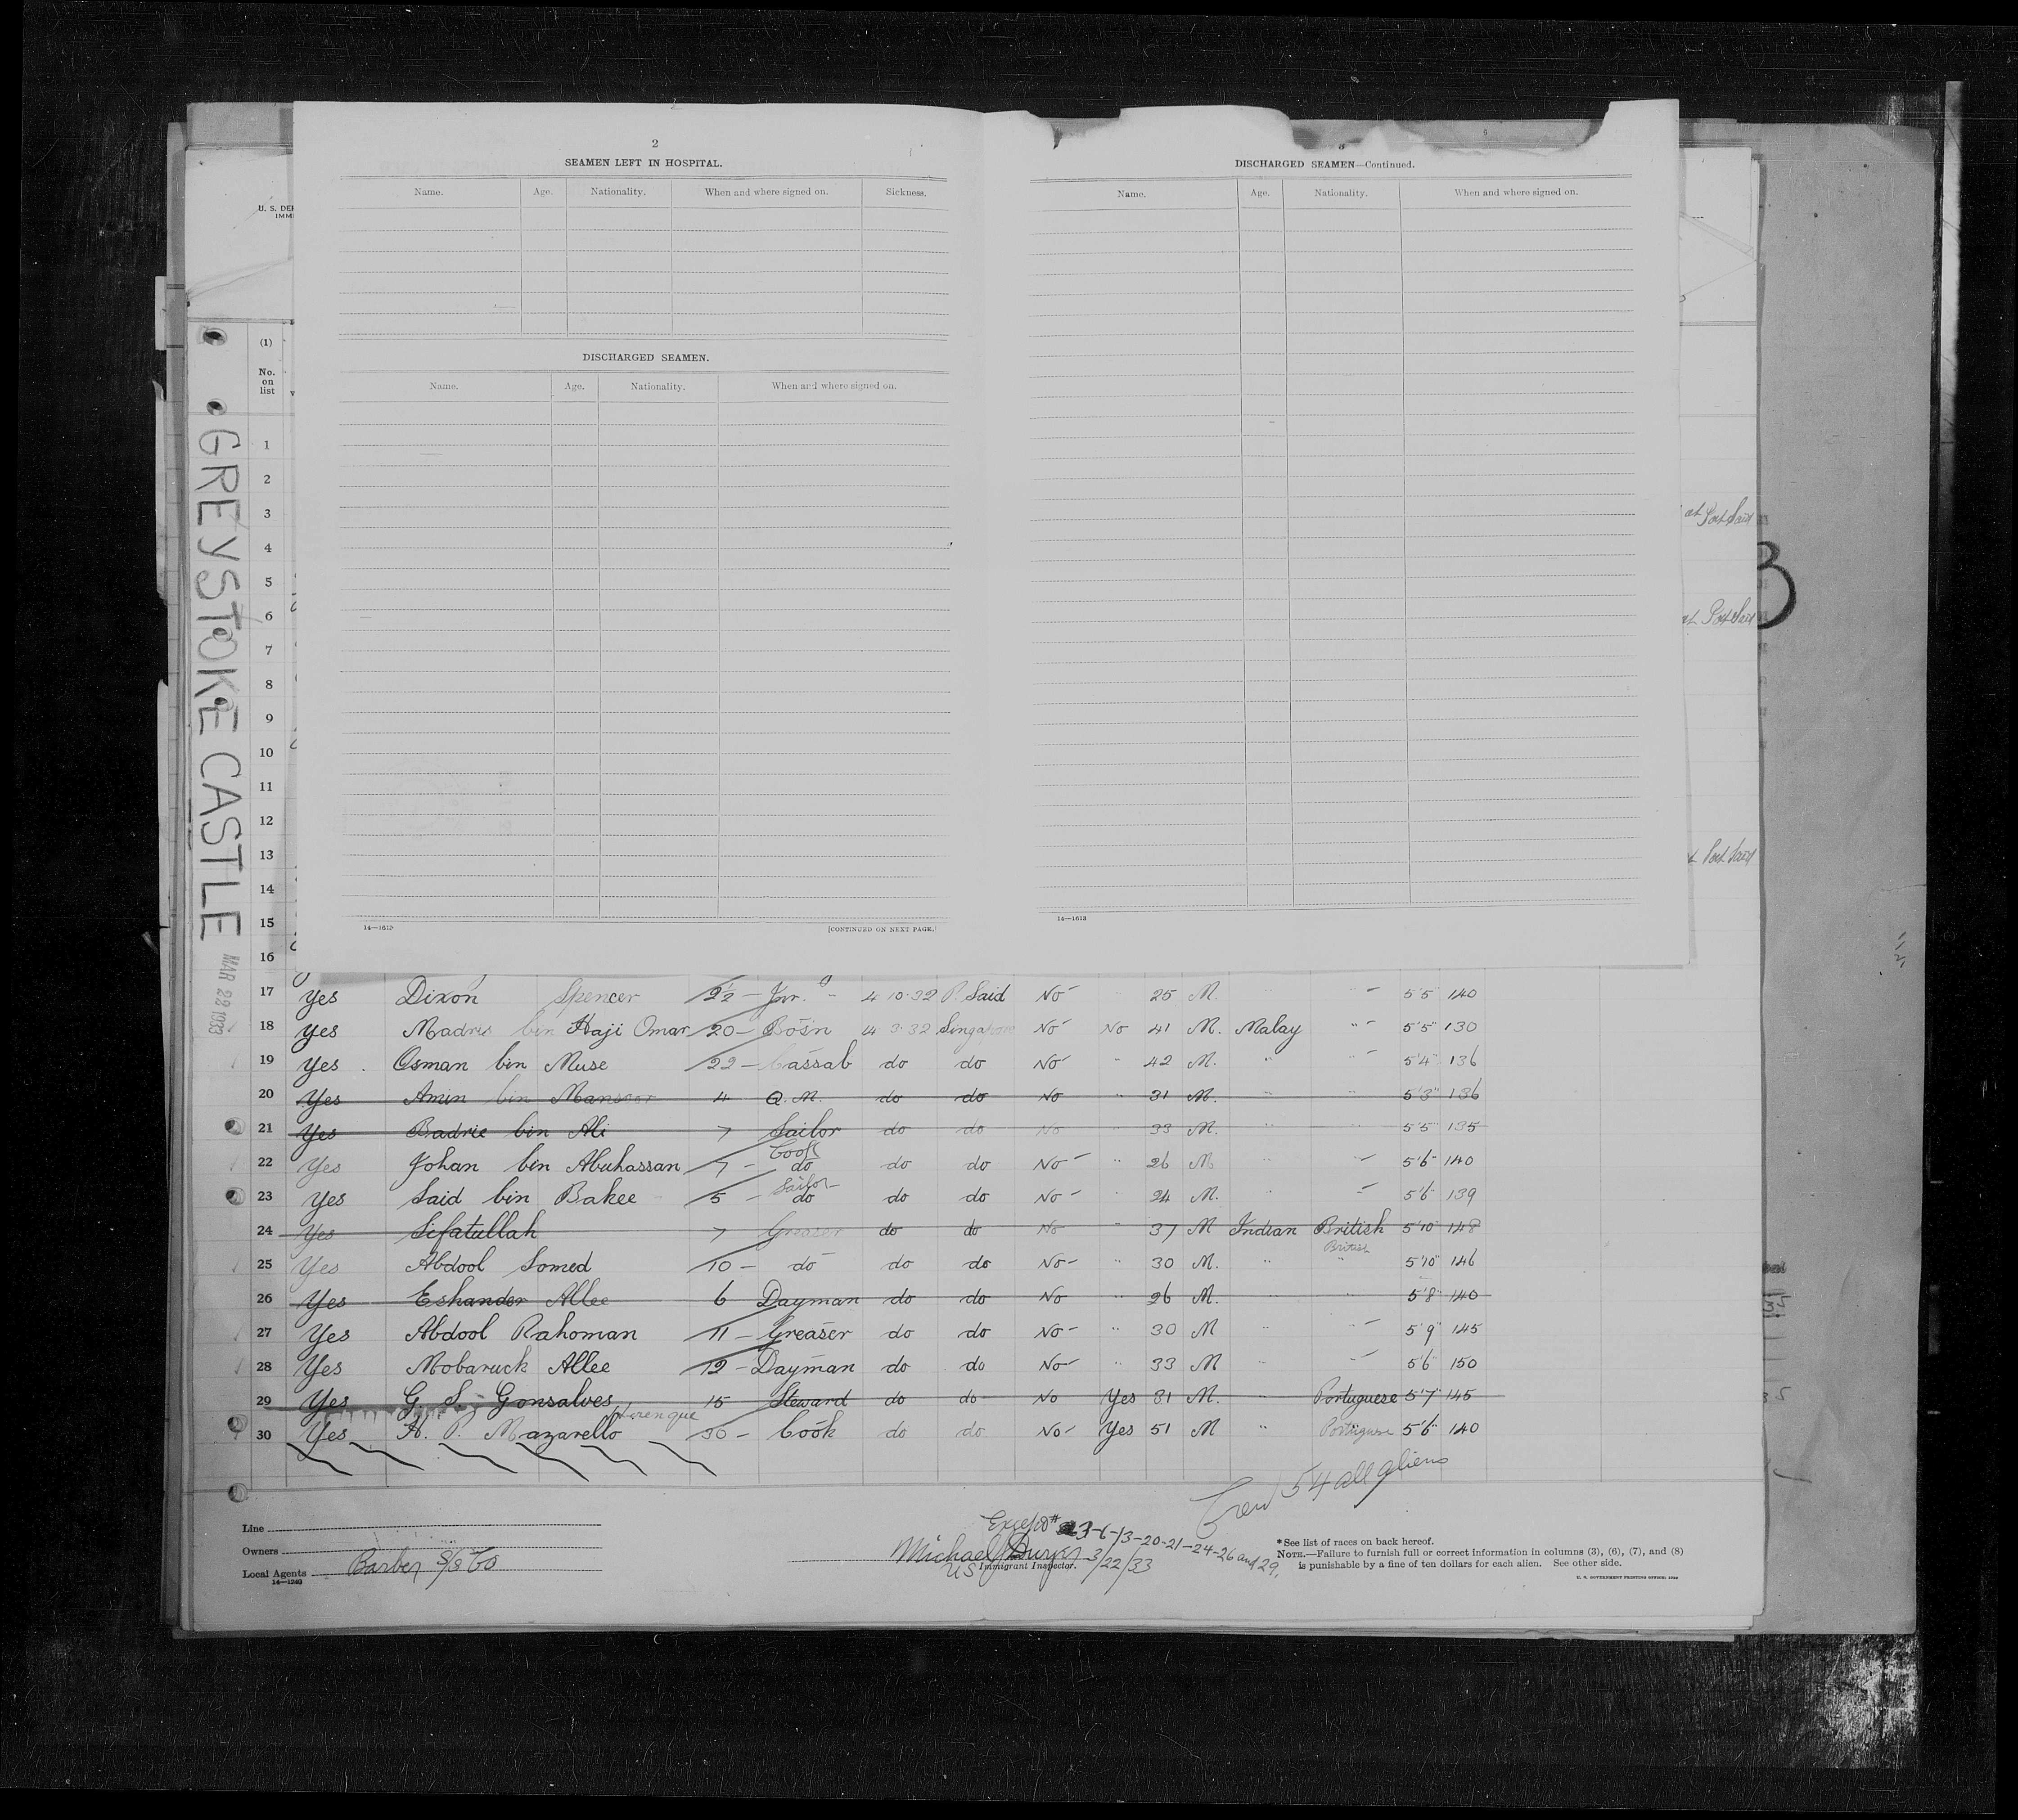 2
SEAMEN LEFT IN HOSPITAL.
Name. Age. Nationality. When and where signed on. Sickness.
DISCHARGED SEAMEN.
Name. Age. Nationality. When and where signed on.
14—1613
[CONTINUED ON NEXT PAGE.]
DISCHARGED SEAMEN—Continued.
Name. Age. Nationality. When and where signed on.
14—1613
U. S. DE
IMM
(1)
No. on list
GREYSTOKE CASTLE
MAR 22 1933
1
2
3
at Port Said
4
5
6
at Port Said
7
8
9
10
11
12
13
at Port Said
14
15
16
17 Yes Dixon Spencer 2½ — Jnr. 4 10·32 P. Said No " 25 M. " " 5'5 140
18 Yes Madris bin Haji Omar 20 — Bosn 4 9·32 Singapore No No 41 M. Malay " 5'5" 130
19 Yes Osman bin Muse 22 — Cassab do do No " 42 M. " " 5'4" 136
20 Yes Amin bin Mansoor 4 Q.M. do do No " 31 M. " " 5'3" 136
21 Yes Badrie bin Ali 7 Sailor do do No " 33 M. " " 5'5 135
22 Yes Johan bin Abuhassan 7 — Cook do do do No " 26 M " " 5'6" 140
23 Yes Said bin Bakee 5 — Sailor do do do No " 24 M. " " 5'6 139
24 Yes Sifatullah 7 Greaser do do No " 37 M Indian British 5'10" 148
25 Yes Abdool Somed 10 — do do do No " 30 M. " British " 5'10" 146
26 Yes Eshander Allee 6 Dayman do do No " 26 M. " " 5'8" 140
27 Yes Abdool Rahoman 11 — Greaser do do No " 30 M " " 5'9" 145
28 Yes Mobaruck Allee 12 — Dayman do do No " 33 M " " 5'6 150
29 Yes G. S. Gonsalves 15 Steward do do No Yes 31 M. " Portuguese 5'7" 145
30 Yes H. P. Mazarello 30 — Cook do do No Yes 51 M " Portuguese 5'6" 140
Crew 54 all aliens
Except # 3-6-13-20-21-24-26 and 29.
Line
Owners
Local Agents Barber S/S Co
14—1240
Michael J Dwyer 3/22/33
US Immigrant Inspector.
*See list of races on back hereof.
NOTE.—Failure to furnish full or correct information in columns (3), (6), (7), and (8)
is punishable by a fine of ten dollars for each alien. See other side.
U. S. GOVERNMENT PRINTING OFFICE: